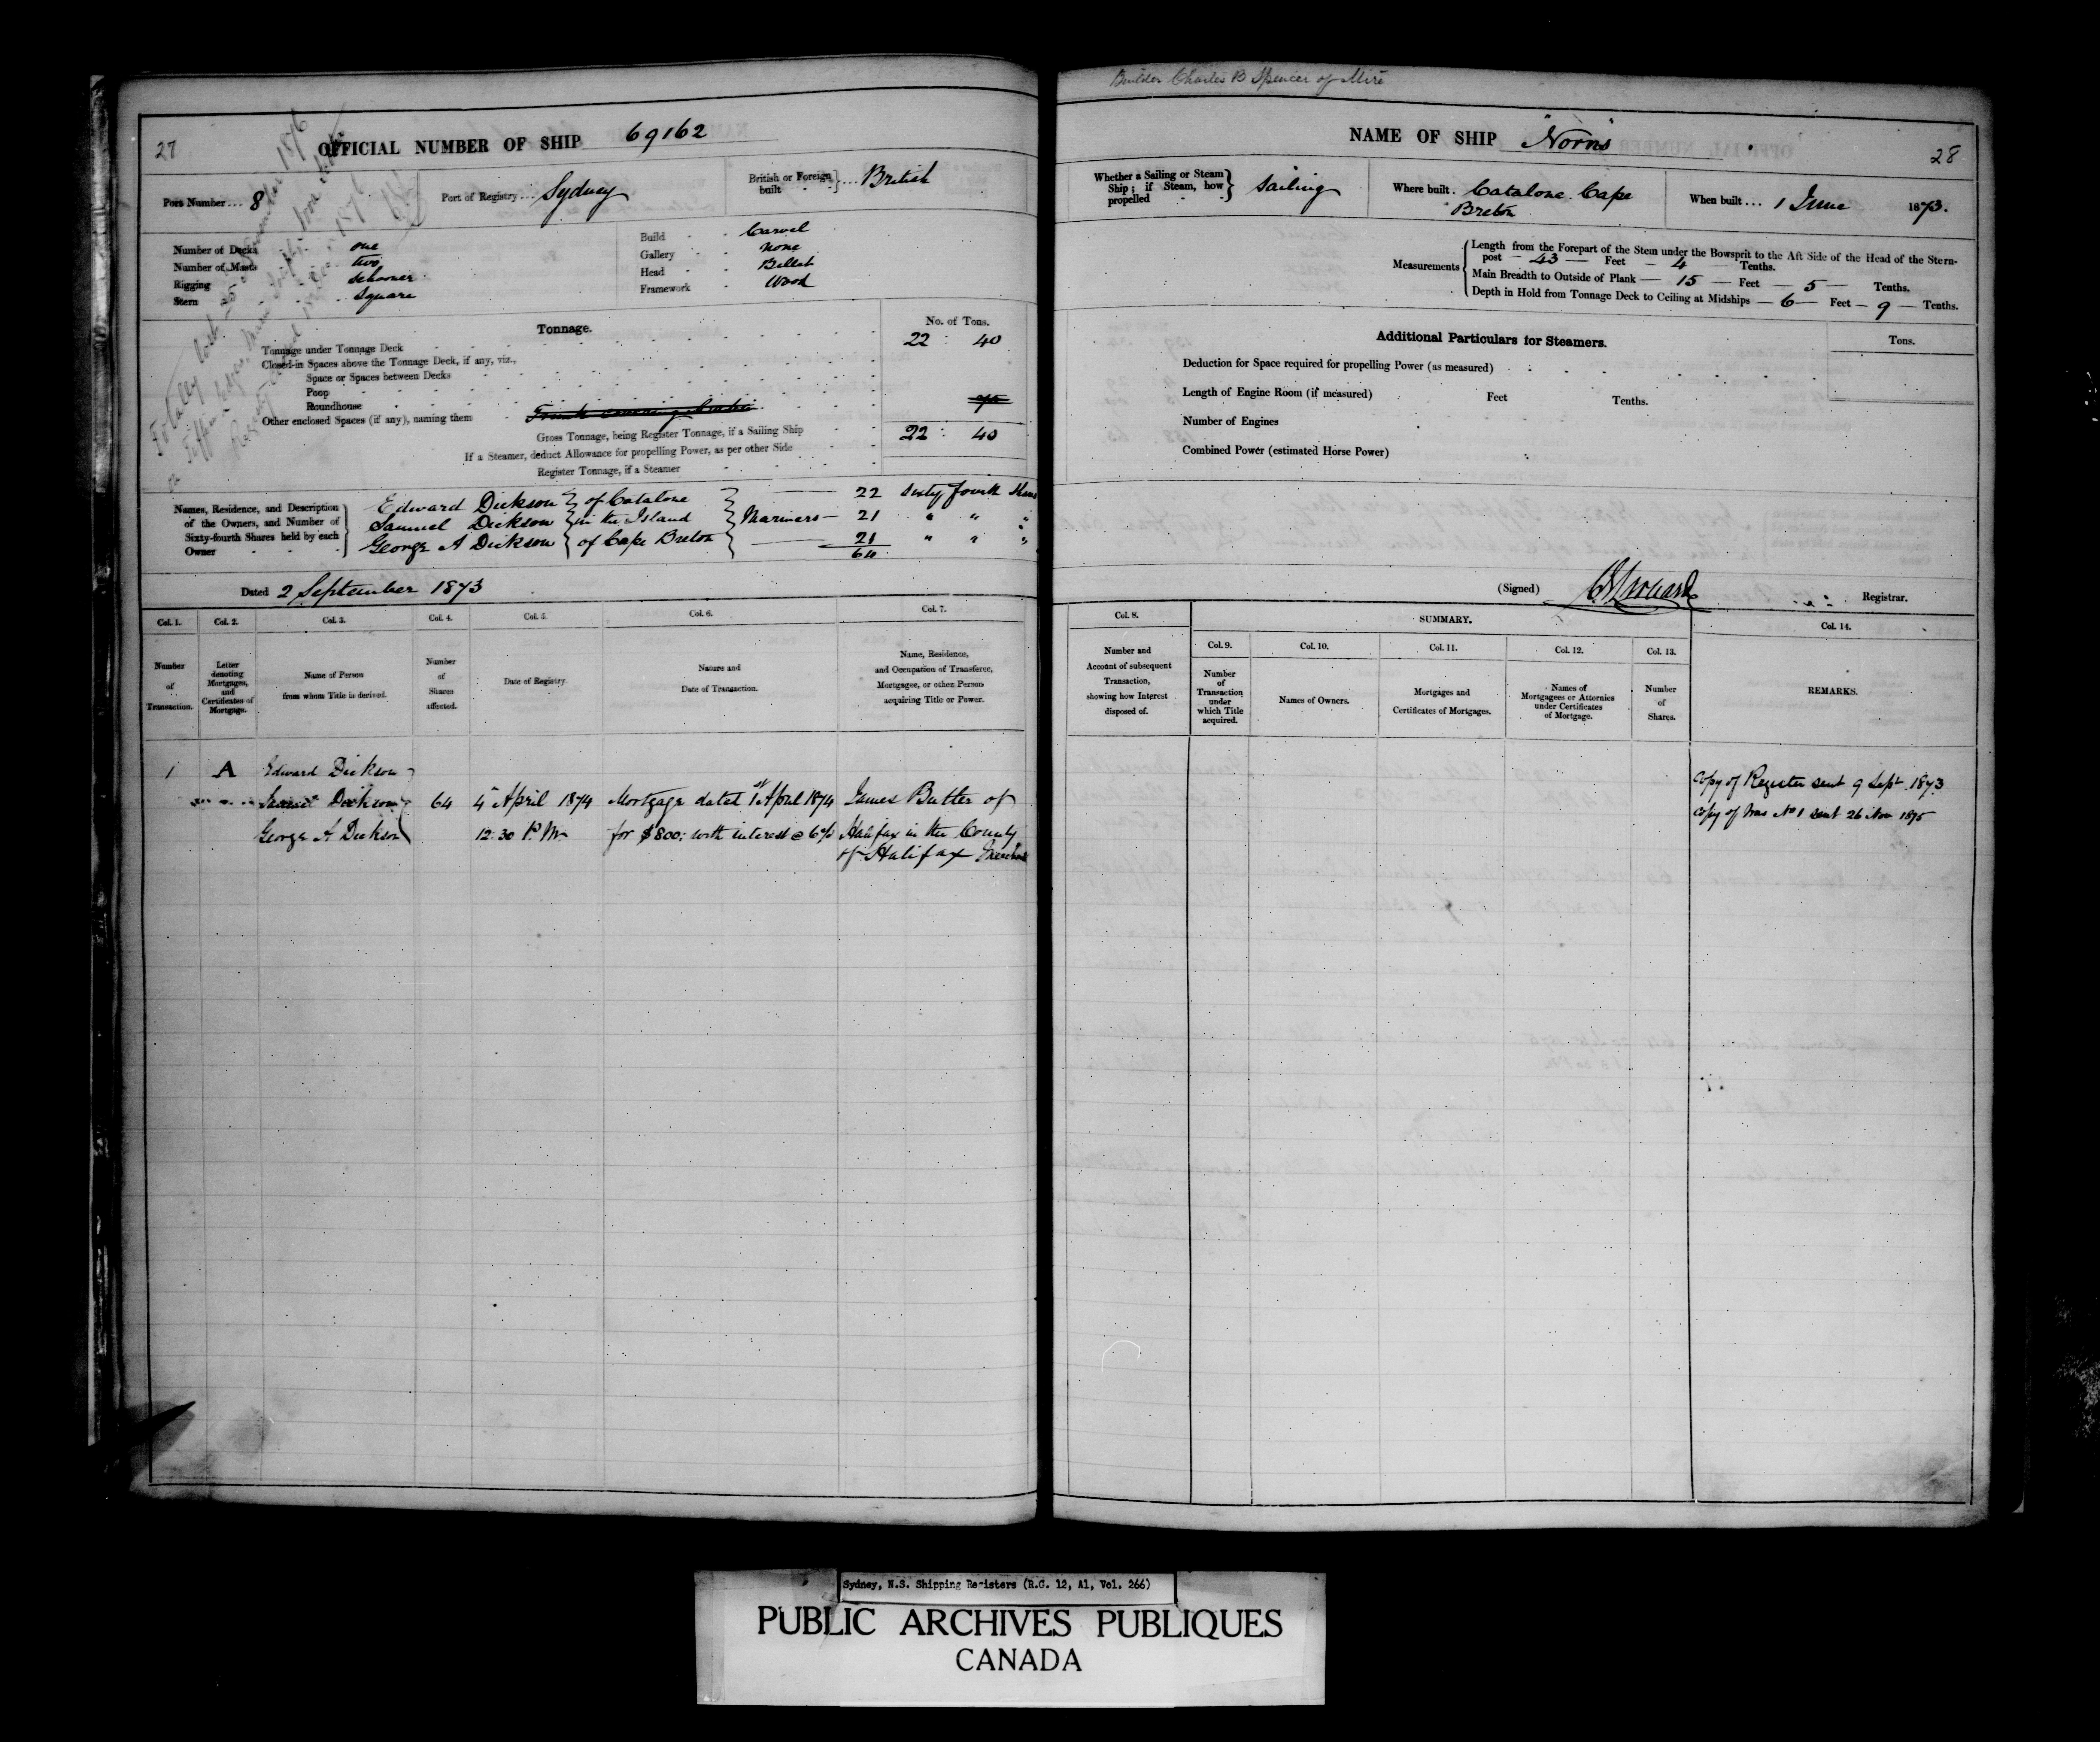 27
OFFICIAL NUMBER OF SHIP 69162
Port Number ... 8
Port of Registry ... Sydney
British or Foreign built } ... British
Number of Decks one
Number of Masts two
Rigging Schooner
Stern Square
Build Carvel
Gallery none
Head Billet
Framework Wood
Totally lost 25
1876
Registry
Tonnage.
No. of Tons.
Tonnage under Tonnage Deck 22 : 40
Closed-in Spaces above the Tonnage Deck, if any, viz.,
Space or Spaces between Decks
Poop
Roundhouse
Other enclosed Spaces (if any), naming them
Gross Tonnage, being Register Tonnage, if a Sailing Ship 22 : 40
If a Steamer, deduct Allowance for propelling Power, as per other Side
Register Tonnage, if a Steamer
Names, Residence, and Description of the Owners, and Number of Sixty-fourth Shares held by each Owner
Edward Dickson } of Catalone } — 22 Sixty fourth Shares
Samuel Dickson } in the Island } Mariners — 21 " " "
George A Dickson } of Cape Breton } — 21 " " "
64
Dated 2 September 1873
Col. 1. Col. 2. Col. 3. Col. 4. Col. 5. Col. 6. Col. 7.
Number of Transaction.
Letter denoting Mortgages, and Certificates of Mortgage.
Name of Person from whom Title is derived.
Number of Shares affected.
Date of Registry.
Nature and Date of Transaction.
Name, Residence, and Occupation of Transferee, Mortgagee, or other Person acquiring Title or Power.
1 A Edward Dickson
Samuel Dickson 64 4 April 1874 Mortgage dated 1st April 1874 James Butler of
George A Dickson 12.30 P.M. for $800; with interest @ 6% Halifax in the County
of Halifax Merchant
Builder Charles B Spencer of Mire
NAME OF SHIP "Norris"
28
Whether a Sailing or Steam Ship; if Steam, how propelled } Sailing
Where built. Catalone Cape Breton
When built ... 1 June 1873.
Measurements { Length from the Forepart of the Stem under the Bowsprit to the Aft Side of the Head of the Stern-
post — 43 — Feet — 4 Tenths.
Main Breadth to Outside of Plank — 15 — Feet — 5 — Tenths.
Depth in Hold from Tonnage Deck to Ceiling at Midships — 6 — Feet — 9 — Tenths.
Additional Particulars for Steamers.
Tons.
Deduction for Space required for propelling Power (as measured)
Length of Engine Room (if measured) Feet Tenths.
Number of Engines
Combined Power (estimated Horse Power)
(Signed) Registrar.
Col. 8.
SUMMARY.
Col. 14.
Col. 9. Col. 10. Col. 11. Col. 12. Col. 13.
Number and Account of subsequent Transaction, showing how Interest disposed of.
Number of Transaction under which Title acquired.
Names of Owners.
Mortgages and Certificates of Mortgages.
Names of Mortgagees or Attornies under Certificates of Mortgage.
Number of Shares.
REMARKS.
Copy of Register sent 9 Sept 1873
Copy of Trns No 1 sent 26 Nov 1875
Sydney, N.S. Shipping Registers (R.G. 12, A1, Vol. 266)
PUBLIC ARCHIVES PUBLIQUES
CANADA